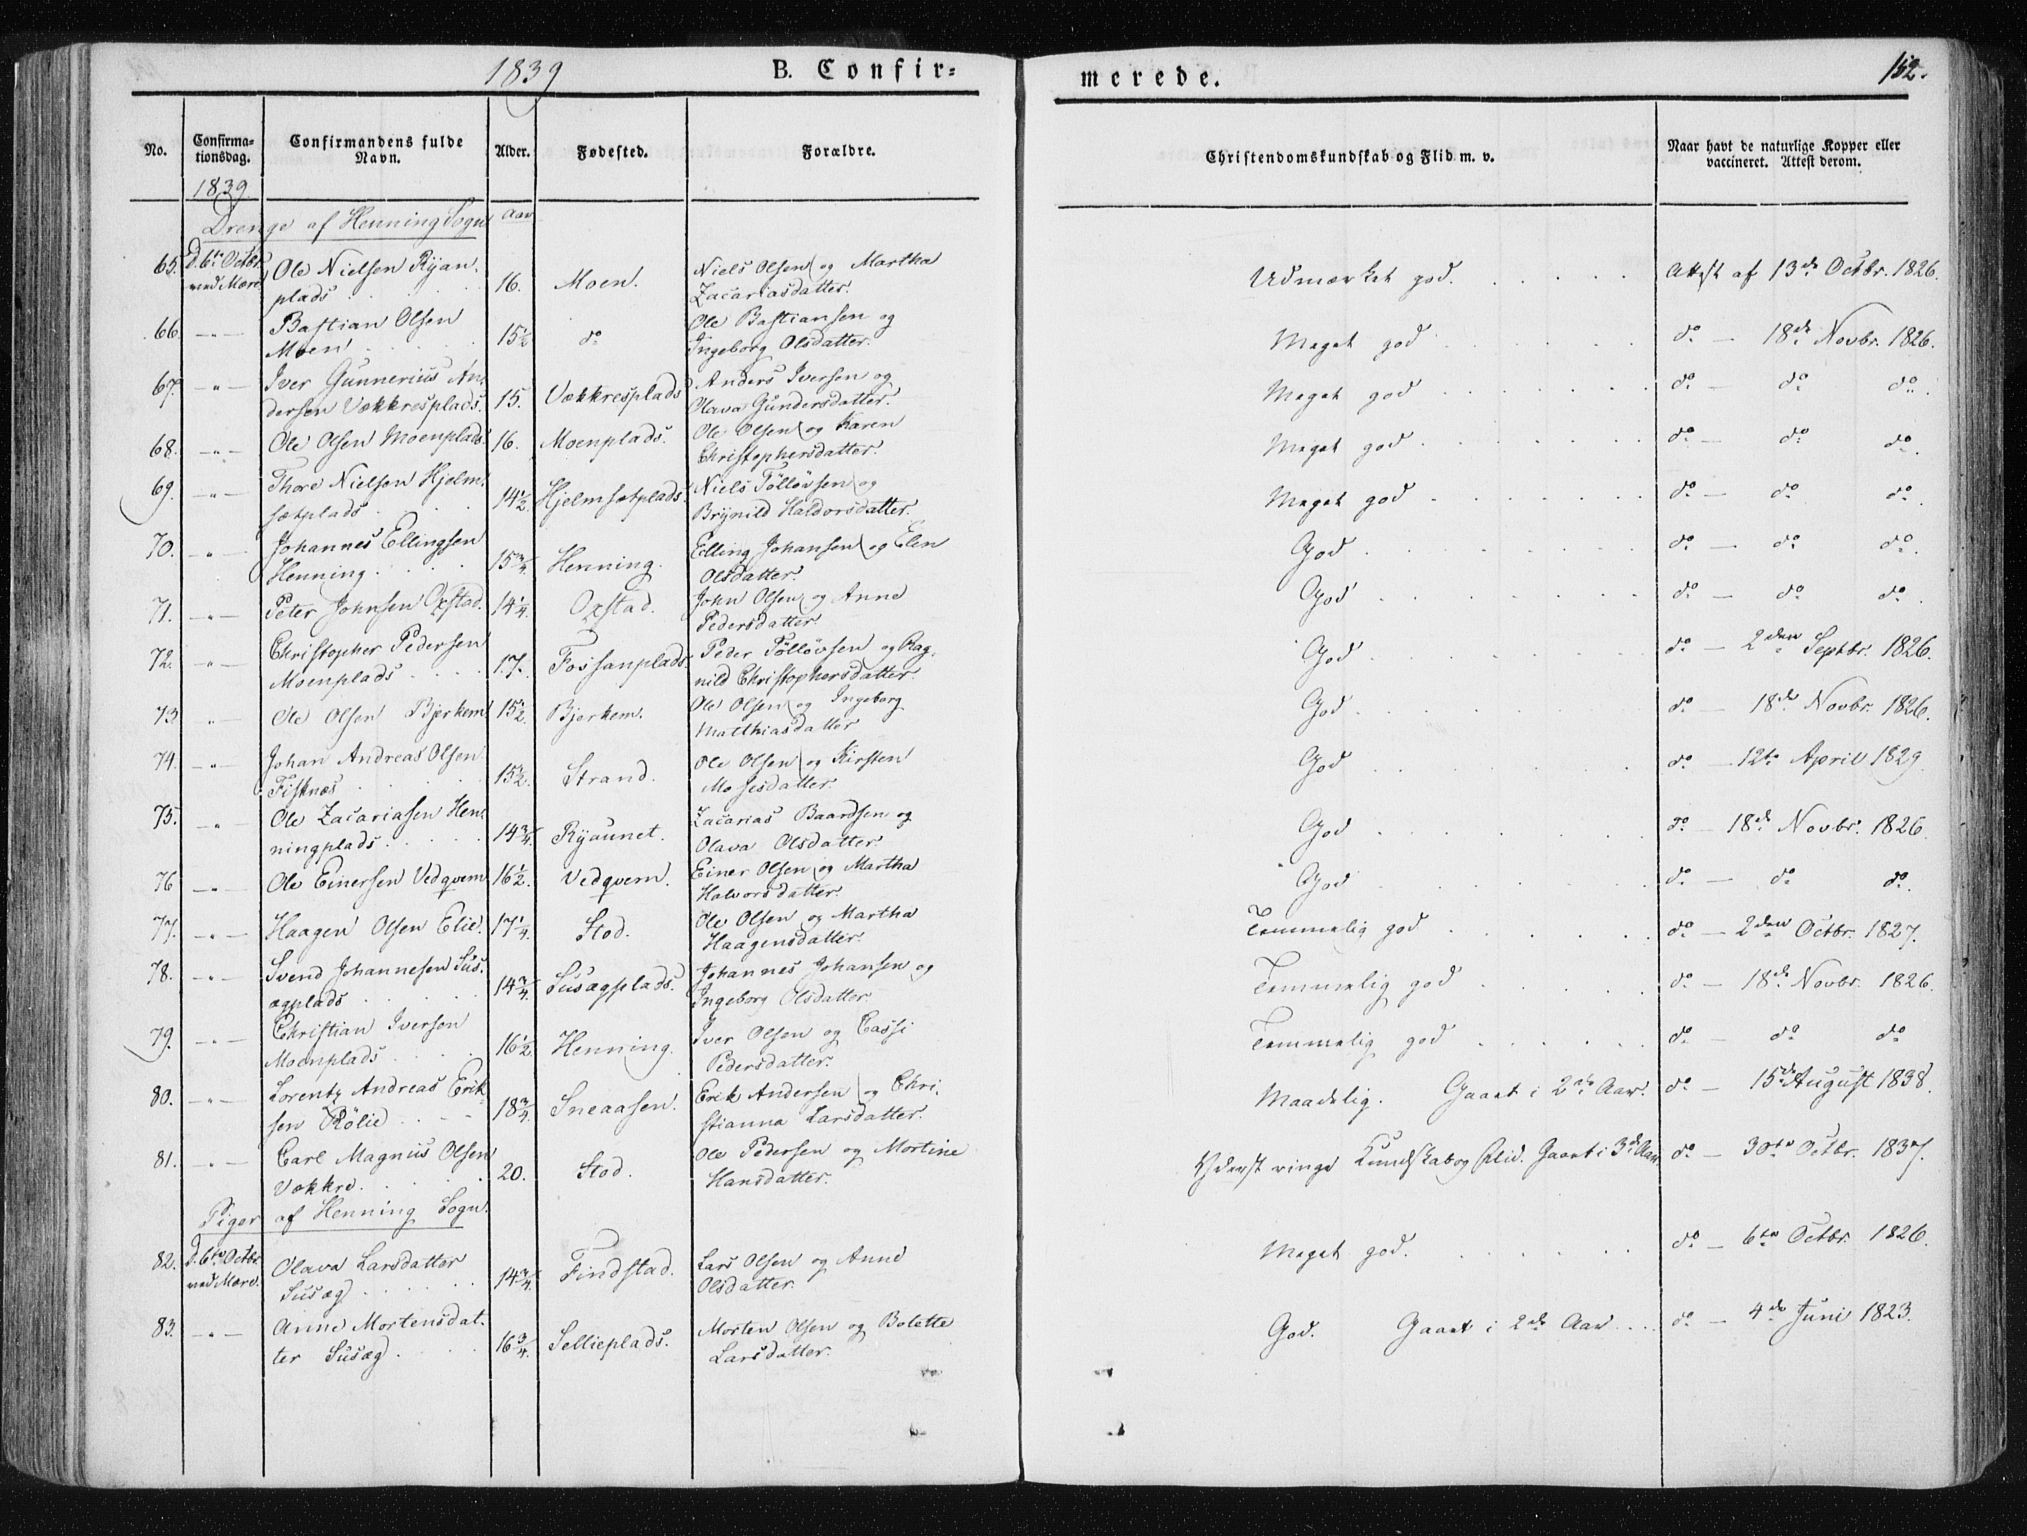 1839 B. Confir= merede. 152.
No. Confirma-tionsdag. Confirmandens fulde Navn. Alder. Fødested. Forældre. Christendomskundskab og Flid m. v. Naar havt de naturlige Kopper eller vaccineret. Attest derom.
1839.
Drenge af Henning Sogn Aar
65. d. 6te Octbr. ved Mære Ole Nielsen Ryan- 16. Moen. Niels Olsen og Martha Udmærket god. Attest af 13de Octbr. 1826.
plads Zacariasdatter.
66 -"- Bastian Olsen 15½ do Ole Bastiansen og Meget god do - 18de Novbr. 1826.
Moen Ingeborg Olsdatter.
67. -"- Iver Gunnerius An- 15. Vækkresplads Anders Iversen og Meget god do - do do.
dersen Vækkresplads. Olava Gundersdatter.
68. -"- Ole Olsen Moenplads 16. Moenplads. Ole Olsen og Karen Meget god do - do do.
Christophersdatter.
69. -"- Thore Nielsen Hjelm- 14½ Hjelmsetplads. Niels Tølløvsen og Meget god do - do do.
sætplads Brynild Haldorsdatter.
70. -"- Johannes Ellingsen 15¾ Henning. Elling Johansen og Elen God do - do do.
Henning. Olsdatter.
71. -"- Peter Johnsen Oxstad. 14¼ Oxstad. John Olsen og Anne God do - do do.
Pedersdatter
72. -"- Christopher Pedersen 17. Fossanplads. Peder Tølløvsen og Rag- God do - 2den Septbr. 1826.
Moenplads nild Christophersdatter.
73 -"- Ole Olsen Bjerkem 15½ Bjerkem. Ole Olsen og Ingeborg God do - 18de Novbr. 1826.
Matthiasdatter
74. -"- Johan Andreas Olsen 15½. Strand. Ole Olsen og Kirsten God do - 12te April 1829.
Fisknæs Mosesdatter.
75. -"- Ole Zacariasen Hen- 14¾ Ryaunet. Zacarias Baardsen og God do - 18de Novbr. 1826.
ningplads. Olava Olsdatter
76 -"- Ole Einersen Vedqvern 16½. Vedqvern. Einer Olsen og Martha God do - do do.
Halvorsdatter.
77. -"- Haagen Olsen Elie. 17¼. Stod. Ole Olsen og Martha Temmelig god do - 2den Octbr. 1827.
Haagensdatter.
78. -"- Svend Johannesen Sus- 14¾ Susægplads. Johannes Johansen og Temmelig god do - 18de Novbr. 1826.
ægplads Ingeborg Olsdatter
79. -"- Christian Iversen 16½ Henning. Iver Olsen og Cassi Temmelig god do - do do
Moenplads Pedersdatter.
80. -"- Lorentz Andreas Erik- 18¾ Sneaasen. Erik Andersen og Chri- Maadelig. Gaaet i 2det Aar. do - 15de August 1838.
sen Rølie stianna Larsdatter.
81. -"- Carl Magnus Olsen 20. Stod. Ole Pedersen og Mortine Yderst ringe Kundskab og Flid. Gaaet i 3de Aar. do - 30te Octbr. 1837.
Vækkre. Hansdatter.
Piger af Henning Sogn.
82. d. 6te Octbr. ved Mære. Olava Larsdatter 14¾ Findstad. Lars Olsen og Anne Meget god. do - 6te Octbr. 1826.
Susæg Olsdatter.
83. -"- Anne Mortensdat- 16¾ Sellieplads. Morten Olsen og Bolette God. Gaaet i 2de Aar do - 4de Juni 1823.
ter Susæg. Larsdatter.